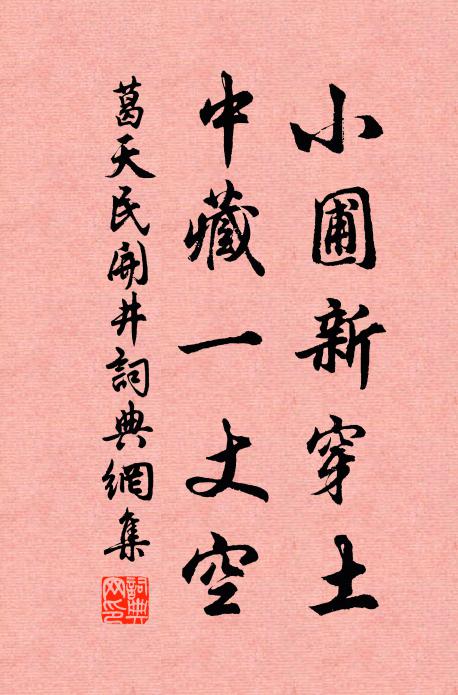 小圃新穿土
中藏一丈空
葛天民開井詞典網集
詞典網印